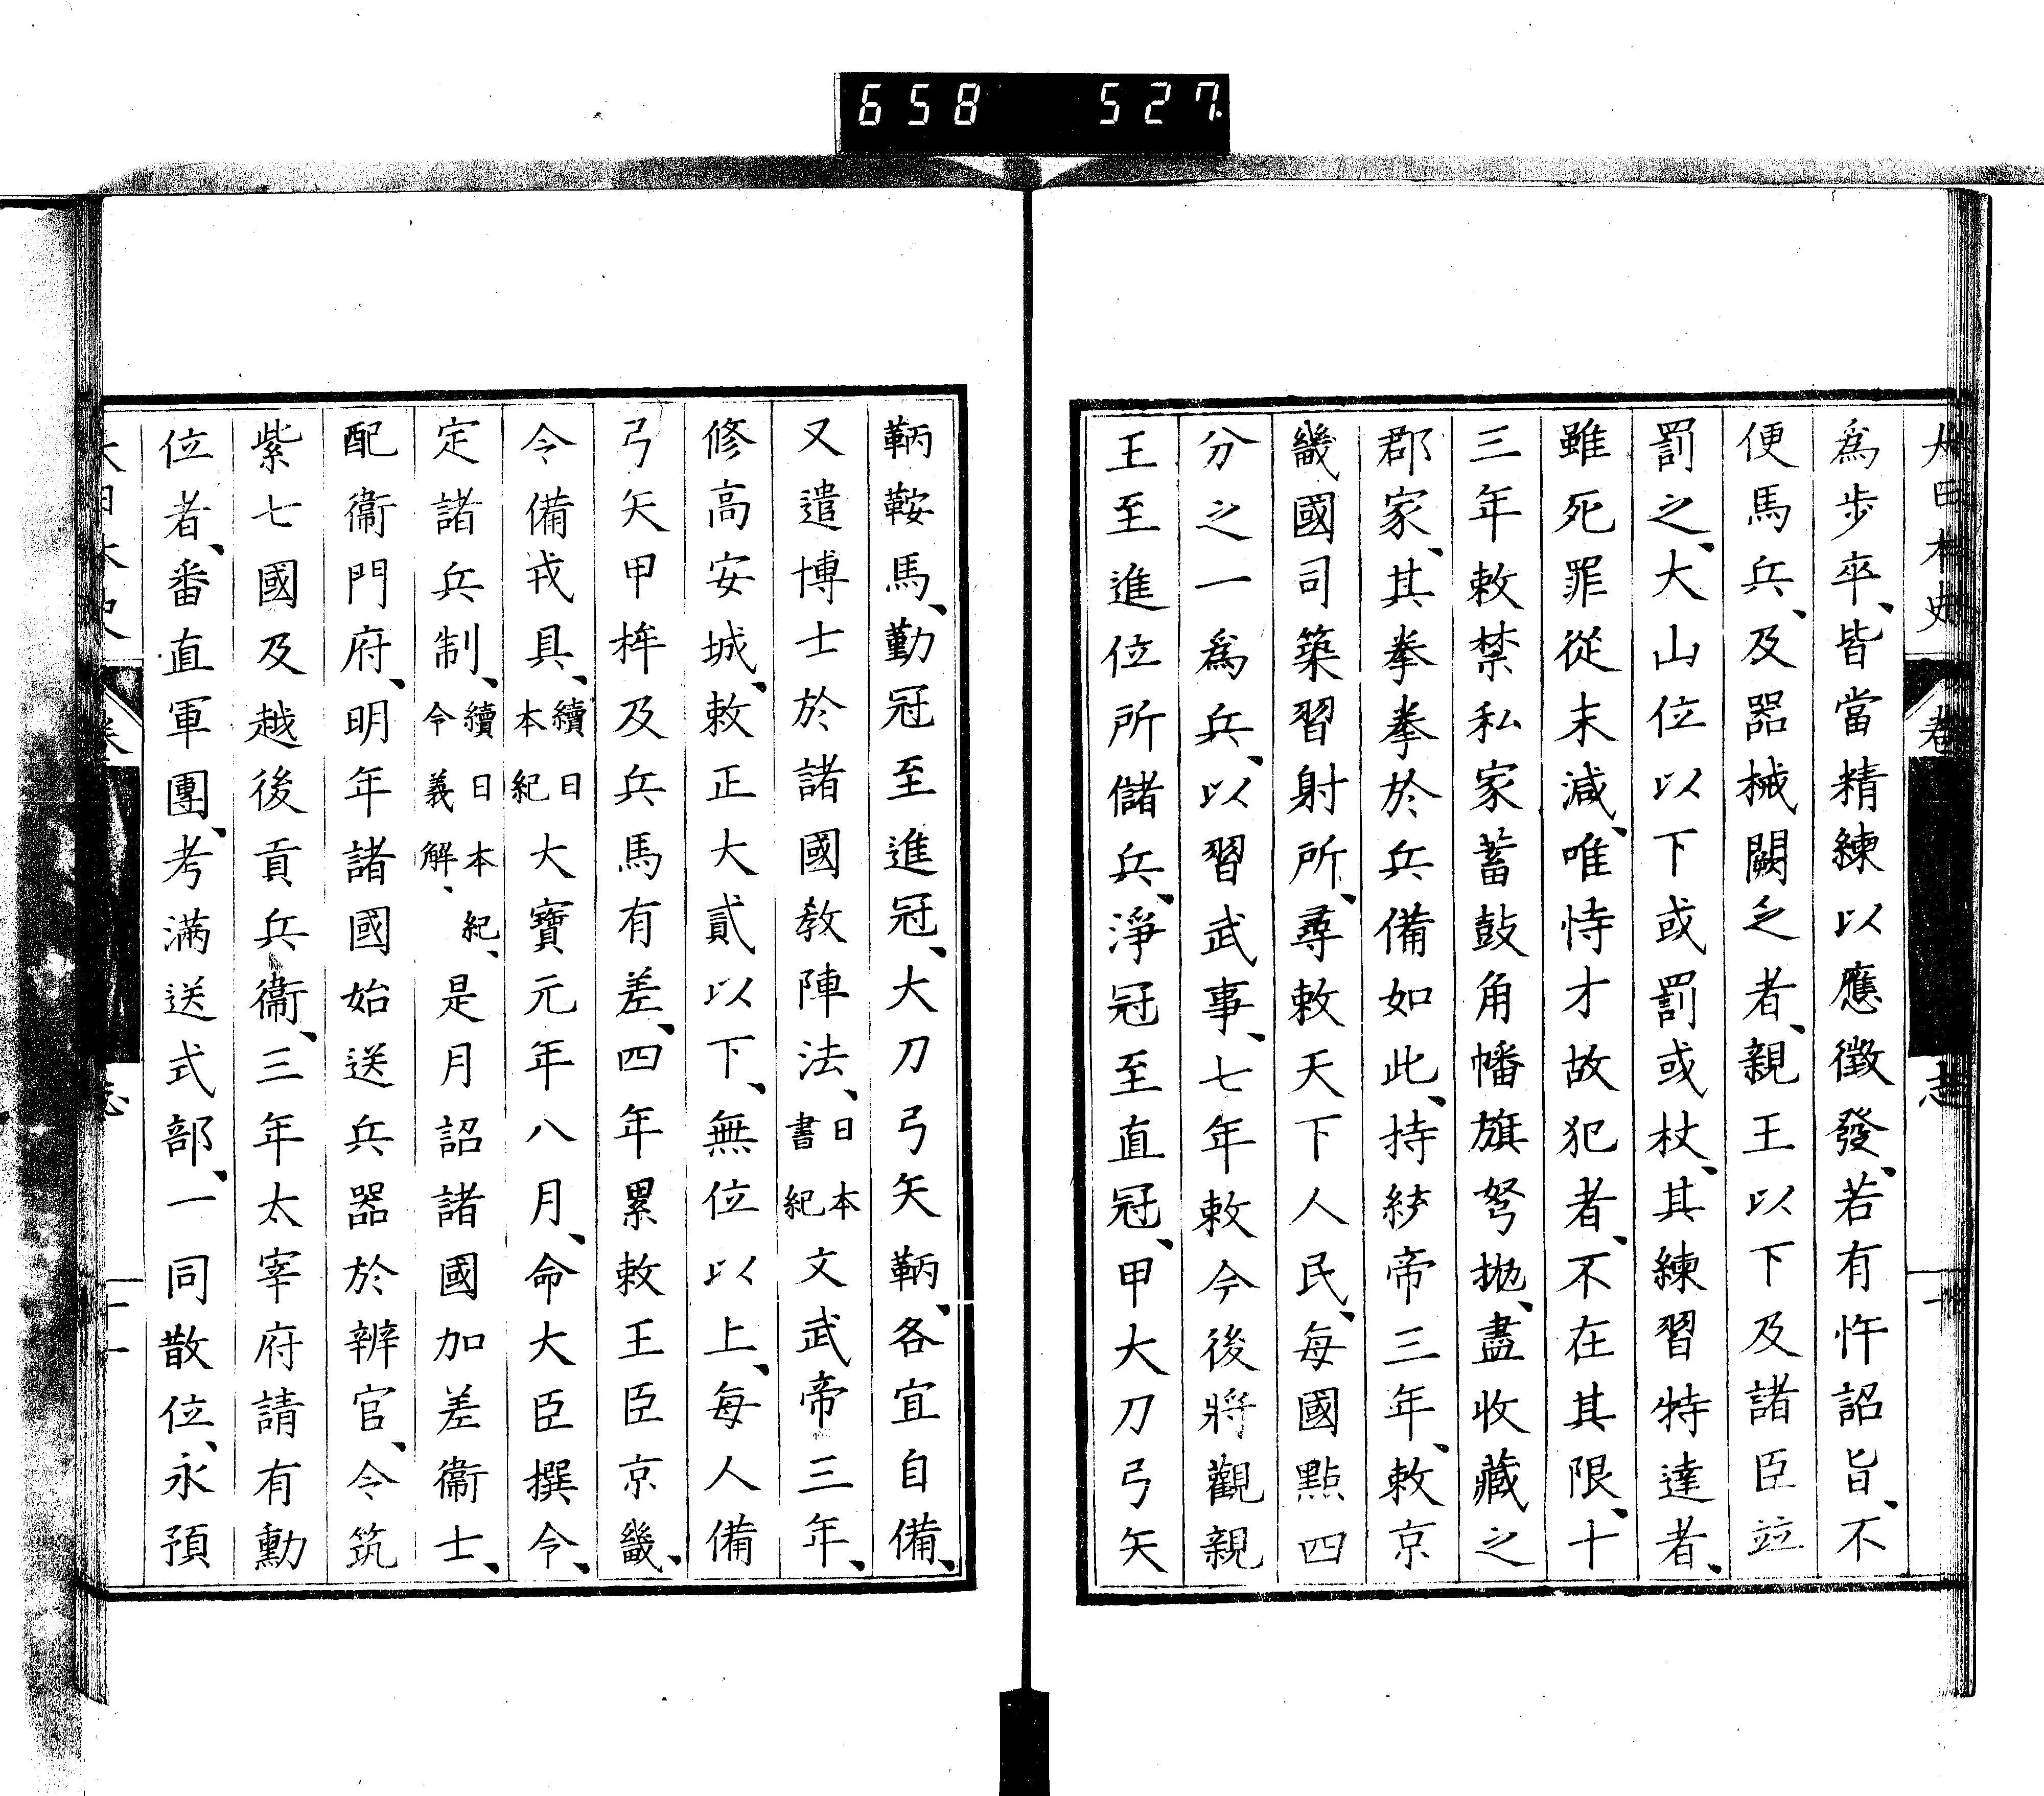 658 527
大日本史 卷 志
爲步卒、皆當精練以應徵發、若有忤詔旨、不
便馬兵、及器械闕乏者、親王以下及諸臣竝
罰之、大山位以下或罰或杖、其練習特達者、
雖死罪從末減、唯恃才故犯者、不在其限、十
三年敕禁私家蓄鼓角幡旗弩拋、盡收藏之
郡家、其拳拳於兵備如此、持統帝三年、敕京
畿國司築習射所、尋敕天下人民、每國點四
分之一爲兵、以習武事、七年敕今後將觀親
王至進位所儲兵、淨冠至直冠、甲大刀弓矢
鞆鞍馬、勤冠至進冠、大刀弓矢鞆、各宜自備、
又遣博士於諸國敎陣法、日本書紀文武帝三年、
修高安城、敕正大貳以下、無位以上、每人備
弓矢甲桙及兵馬有差、四年累敕王臣京畿、
令備戎具、續日本紀大寶元年八月、命大臣撰令、
定諸兵制、續日本紀、令義解、是月詔諸國加差衞士、
配衞門府、明年諸國始送兵器於辨官、令筑
紫七國及越後貢兵衞、三年太宰府請有勳
位者、番直軍團、考滿送式部、一同散位、永預